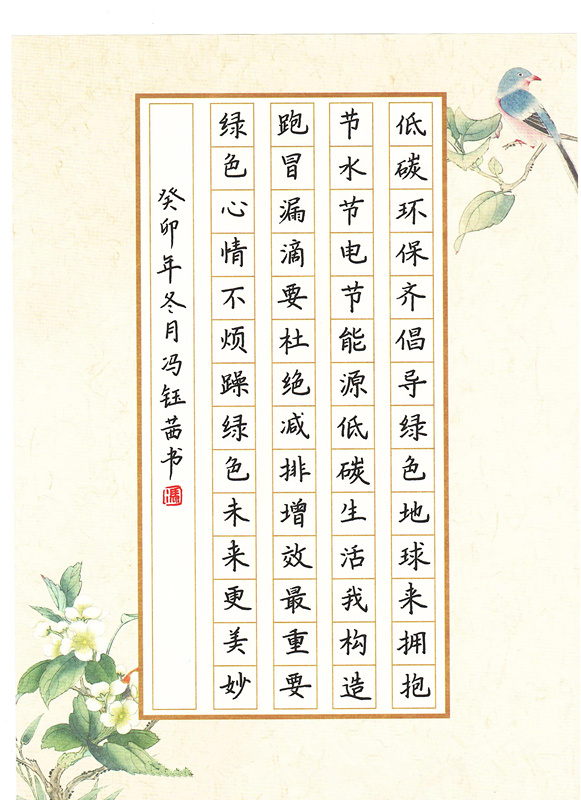 低碳环保齐倡导绿色地球来拥抱
节水节电节能源低碳生活我构造
跑冒漏滴要杜绝减排增效最重要
绿色心情不烦躁绿色未来更美妙
癸卯年冬月冯钰茜书
冯